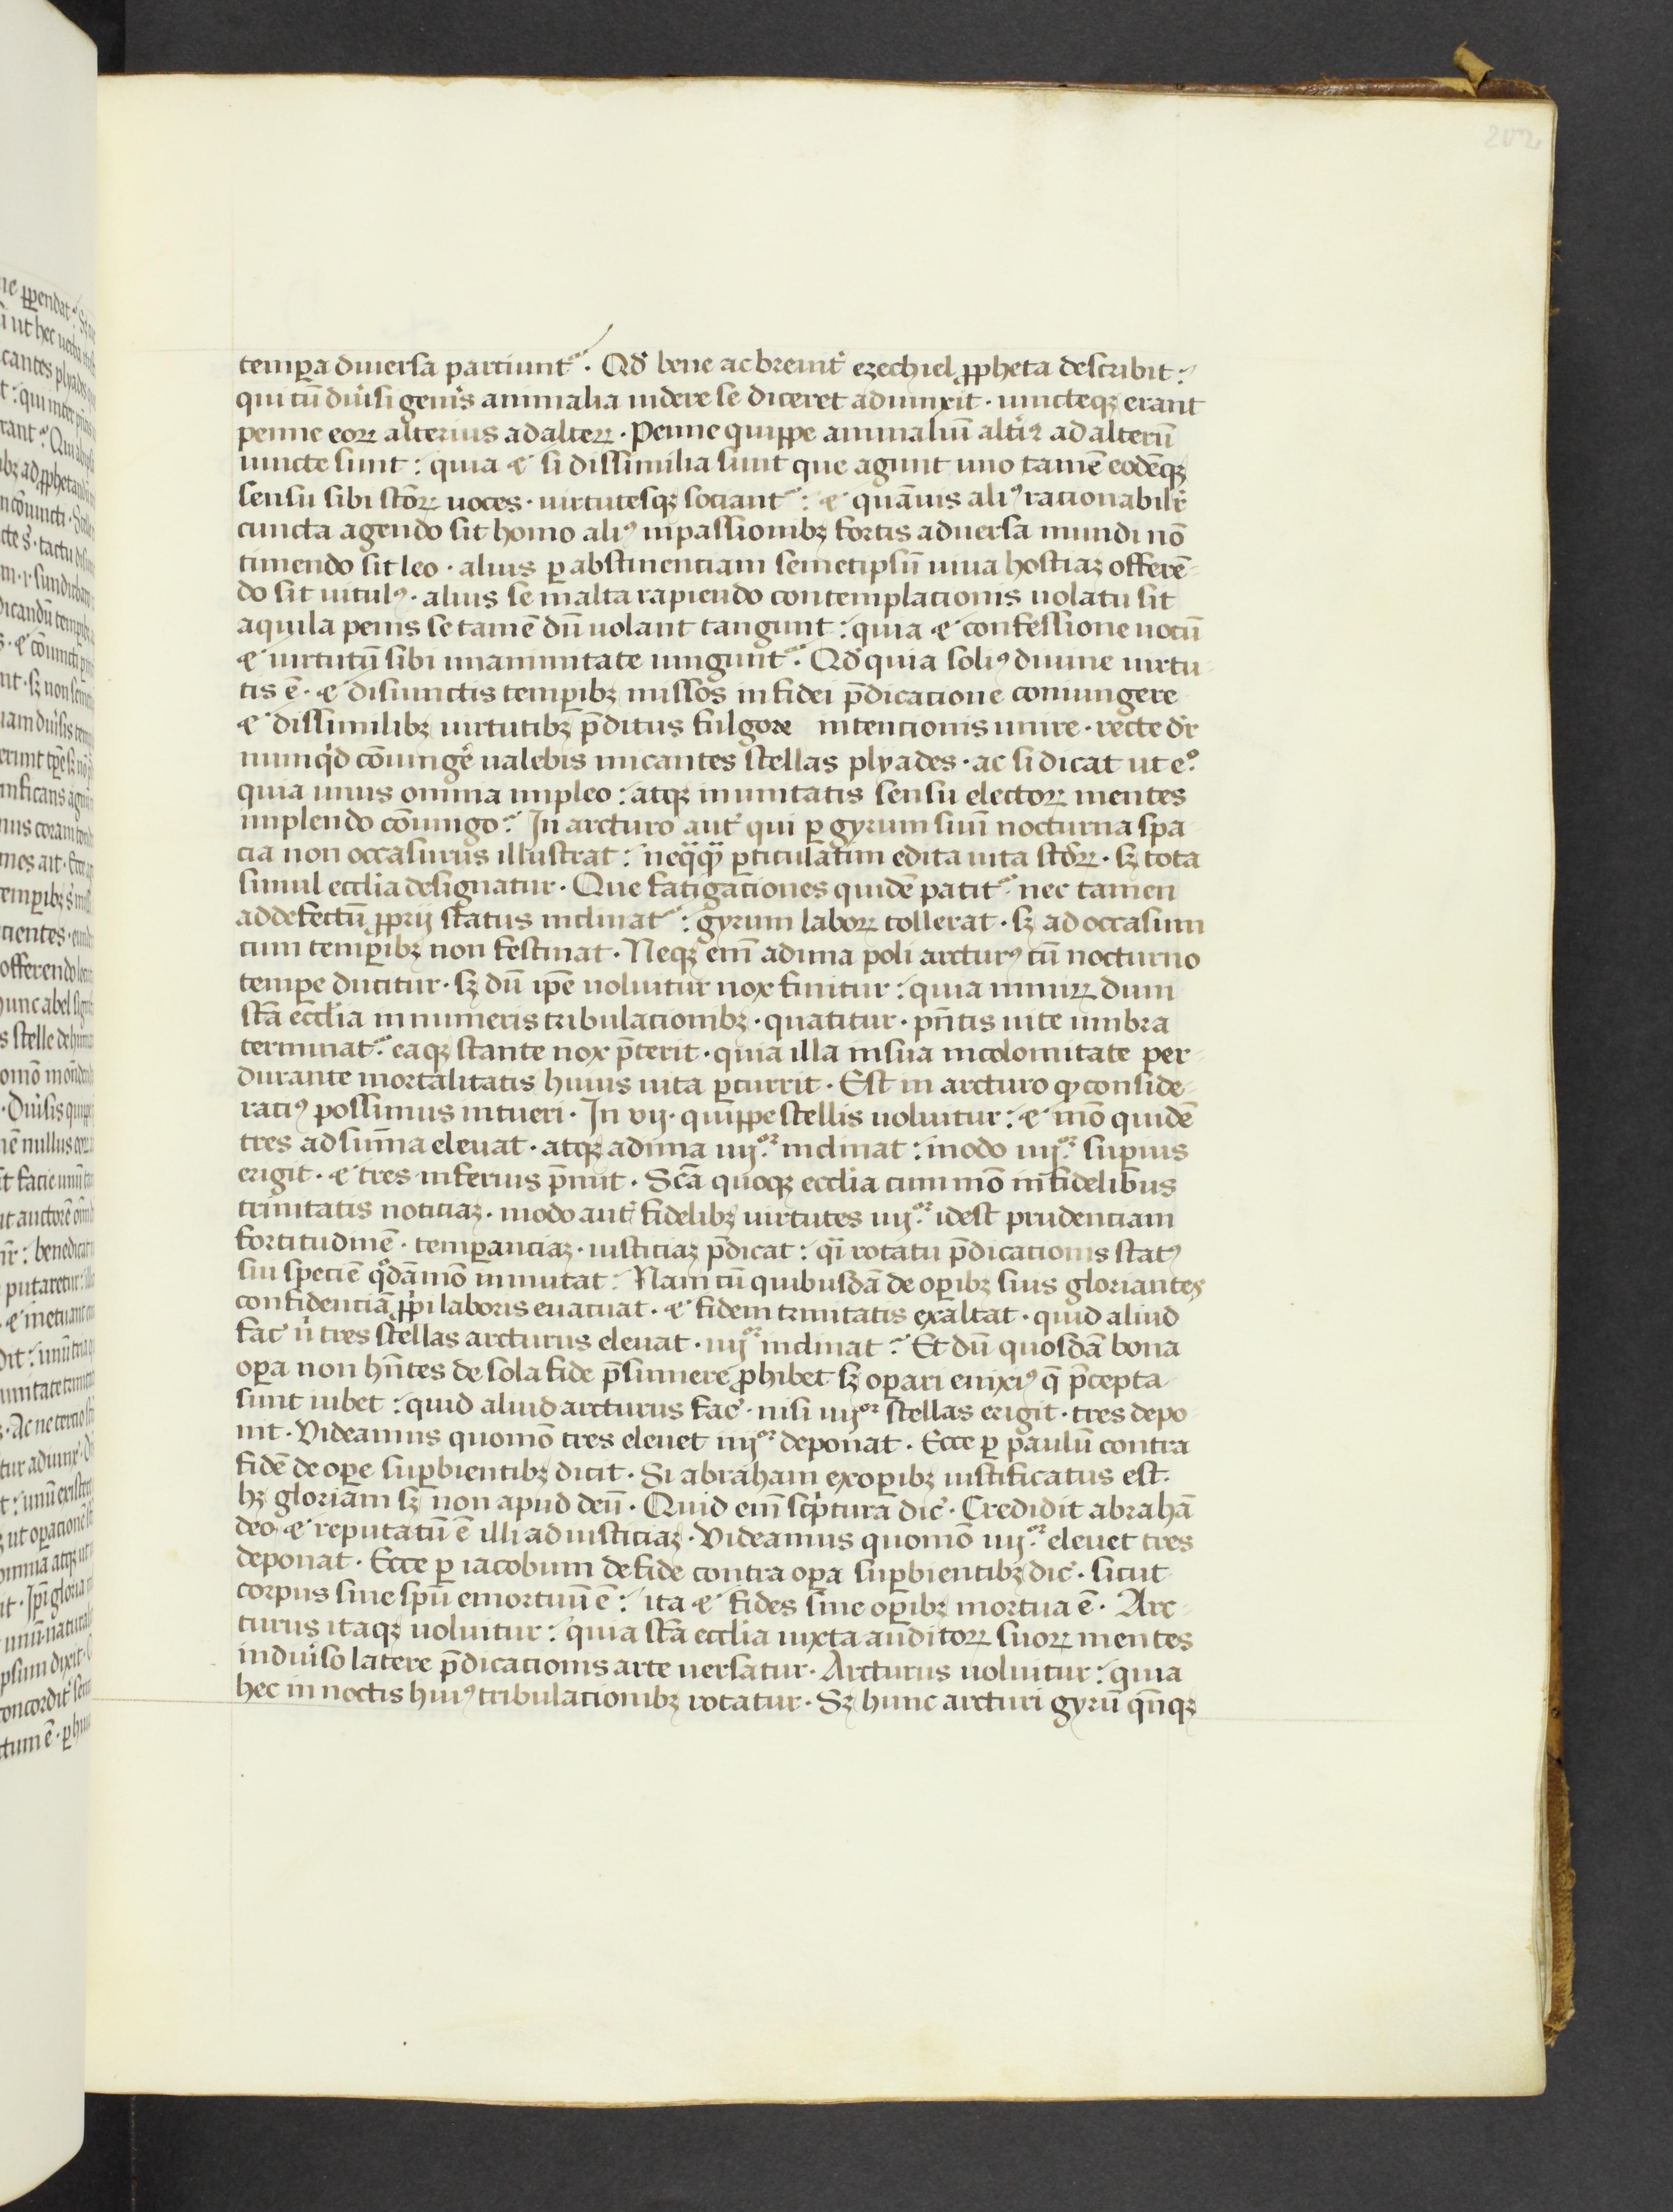 202
tempꝑa diuersa partiunt᷑. Qđ bene ac breuit᷑ ezechiel ꝓpheta describit:
qui cū diu᷑si genr̃is animalia uidere se diceret adiunxit. iuncteqȝ erant
penne eoꝝ alterius ad alterꝝ. Penne quippe animaliū alt᷑iꝰ ad alterū
iuncte sunt: quia ⁊ si dissimilia sunt que agunt uno tamē eodēqȝ
sensu sibi sc̄oꝝ uoces. uirtutesqȝ sociant᷑: ⁊ quāuis aliꝰ racionabilr̃
cuncta agendo sit homo aliꝰ in passionibȝ fortis aduersa mundi nō
timendo sit leo. alius ꝑ abstinentiam semetipsū uiua hostiaȝ offerē-
do sit uitulꝰ. alius se in alta rapiendo contemplacionis uolatu sit
aquila penis se tamē dū uolant tangunt: quia ⁊ confessione uocū
⁊ uirtutū sibi unanimitate iungunt᷑. Qđ quia soliꝰ diuine uirtu-
tis ē. ⁊ disiunctis temꝑibȝ missos in fidei p̄dicacione coniungere
⁊ dissimilibȝ uirtutibȝ p̄ditus fulgore intencionis unire. recte dr̃
nunqͥd cōiungē ualebis micantes stellas plyades. ac si dicat ut eᵒ.
quia unus omnia impleo: atqȝ in unitatis sensu electoꝝ mentes
implendo cōiungo. In arcturo aut᷑ qui ꝑ gyrum suū nocturna spa
cia non occasurus illustrat: neqͣqͣ ꝑticulatim edita uita sc̄oꝝ. sȝ tota
simul ecclia designatur. Que fatigationes quidē patit᷑ nec tamen
ad defectū ꝓprij status inclinat᷑: gyrum laboꝝ tollerat. sȝ ad occasum
cum temꝑibȝ non festinat. Neqȝ eni᷑ ad ima poli arcturꝰ cū nocturno
temꝑe ducitur. sȝ dū ip̄e uoluitur nox finitur: quia nimiꝝ dum
sc̄a eccl̄ia innumeris tribulacionibȝ. quatitur. pn̄tis uite umbra
terminat᷑. eaqȝ stante nox p̄terit. quia illa in sua incolomitate per-
durante mortalitatis huius uita ꝑcurrit. Est in arcturo qͦ conside-
raciꝰ possimus intueri. In vij. quippe stellis uoluitur: ⁊ mō quidē
tres ad sum̄a eleuat. atqȝ ad ima iiijᵒʳ inclinat: modo iiijᵒʳ suꝑius
erigit. ⁊ tres inferius p̄mit. Sc̄a quoqȝ ecclia cum mō infidelibus
trinitatis noticiaȝ. modo aut᷑ fidelibȝ uirtutes iiijᵒʳ idest prudenciam
fortitudinē. temꝑanciaȝ. iusticiaȝ p̄dicat: qͣi rotatu p̄dicationis statꝰ
sui speciē qͦdāmō inmutat: Nam cū quibusdā de oꝑibȝ suis gloriantes
confidenciā ꝓpͥi laboris euacuat. ⁊ fidem trinitatis exaltat. quid aliud
fac̃ nͥ tres stellas arcturus eleuat. iiijᵒʳ inclinat: Et dū quosdā bona
oꝑa non hn̄tes de sola fide p̄sumere ꝓhibet sȝ oꝑari enixiꝰ q̄ p̄cepta
sunt iubet: quid aliud arcturus fac̃. nisi iiijᵒʳ stellas erigit. tres depo-
nit. Videamus quomō tres eleuet iiijᵒʳ deponat. Ecce ꝑ paulū contra
fidē de oꝑe suꝑbientibȝ dicit. Si abraham ex oꝑibȝ iustificatus est.
hȝ gloriam sȝ non apud deū. Quid eni᷑ scͥptura dic̃. Credidit abrahā
deo ⁊ reputatū ē illi ad iusticiaȝ. Videamus quomō iiijᵒʳ eleuet tres
deponat. Ecce ꝑ iacobum de fide contra oꝑa suꝑbientibȝ dic̃. sicut
corpus sine spū emortuū ē: ita ⁊ fides sine oꝑibȝ mortua ē. Arc-
turus itaqȝ uoluitur: quia sc̄a ecclia iuxta auditoꝝ suoꝝ mentes
in diu᷑so latere p̄dicacionis arte uersatur. Arcturus uoluitur: quia
hec in noctis huiꝰ tribulacionibȝ rotatur. Sȝ hunc arcturi gyrū qn̄qȝ